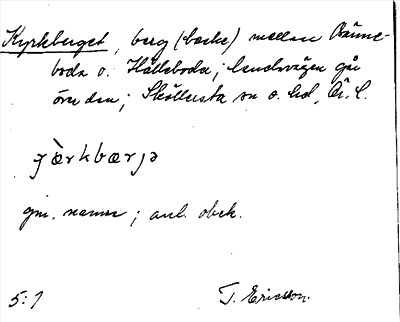 Kyrkberget, berg (backe) mellan Ränne-
boda o. Hälleboda; landsvägen går
över den; Sköllersta sn o. hd, Ör. l.
gm. namn; anl. obek.
5:1 T. Ericsson.